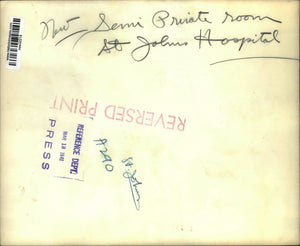 New Semi Private room
St Johns Hospital
REVERSED PRINT
REFERENCE DEPT.
PRESS
St John